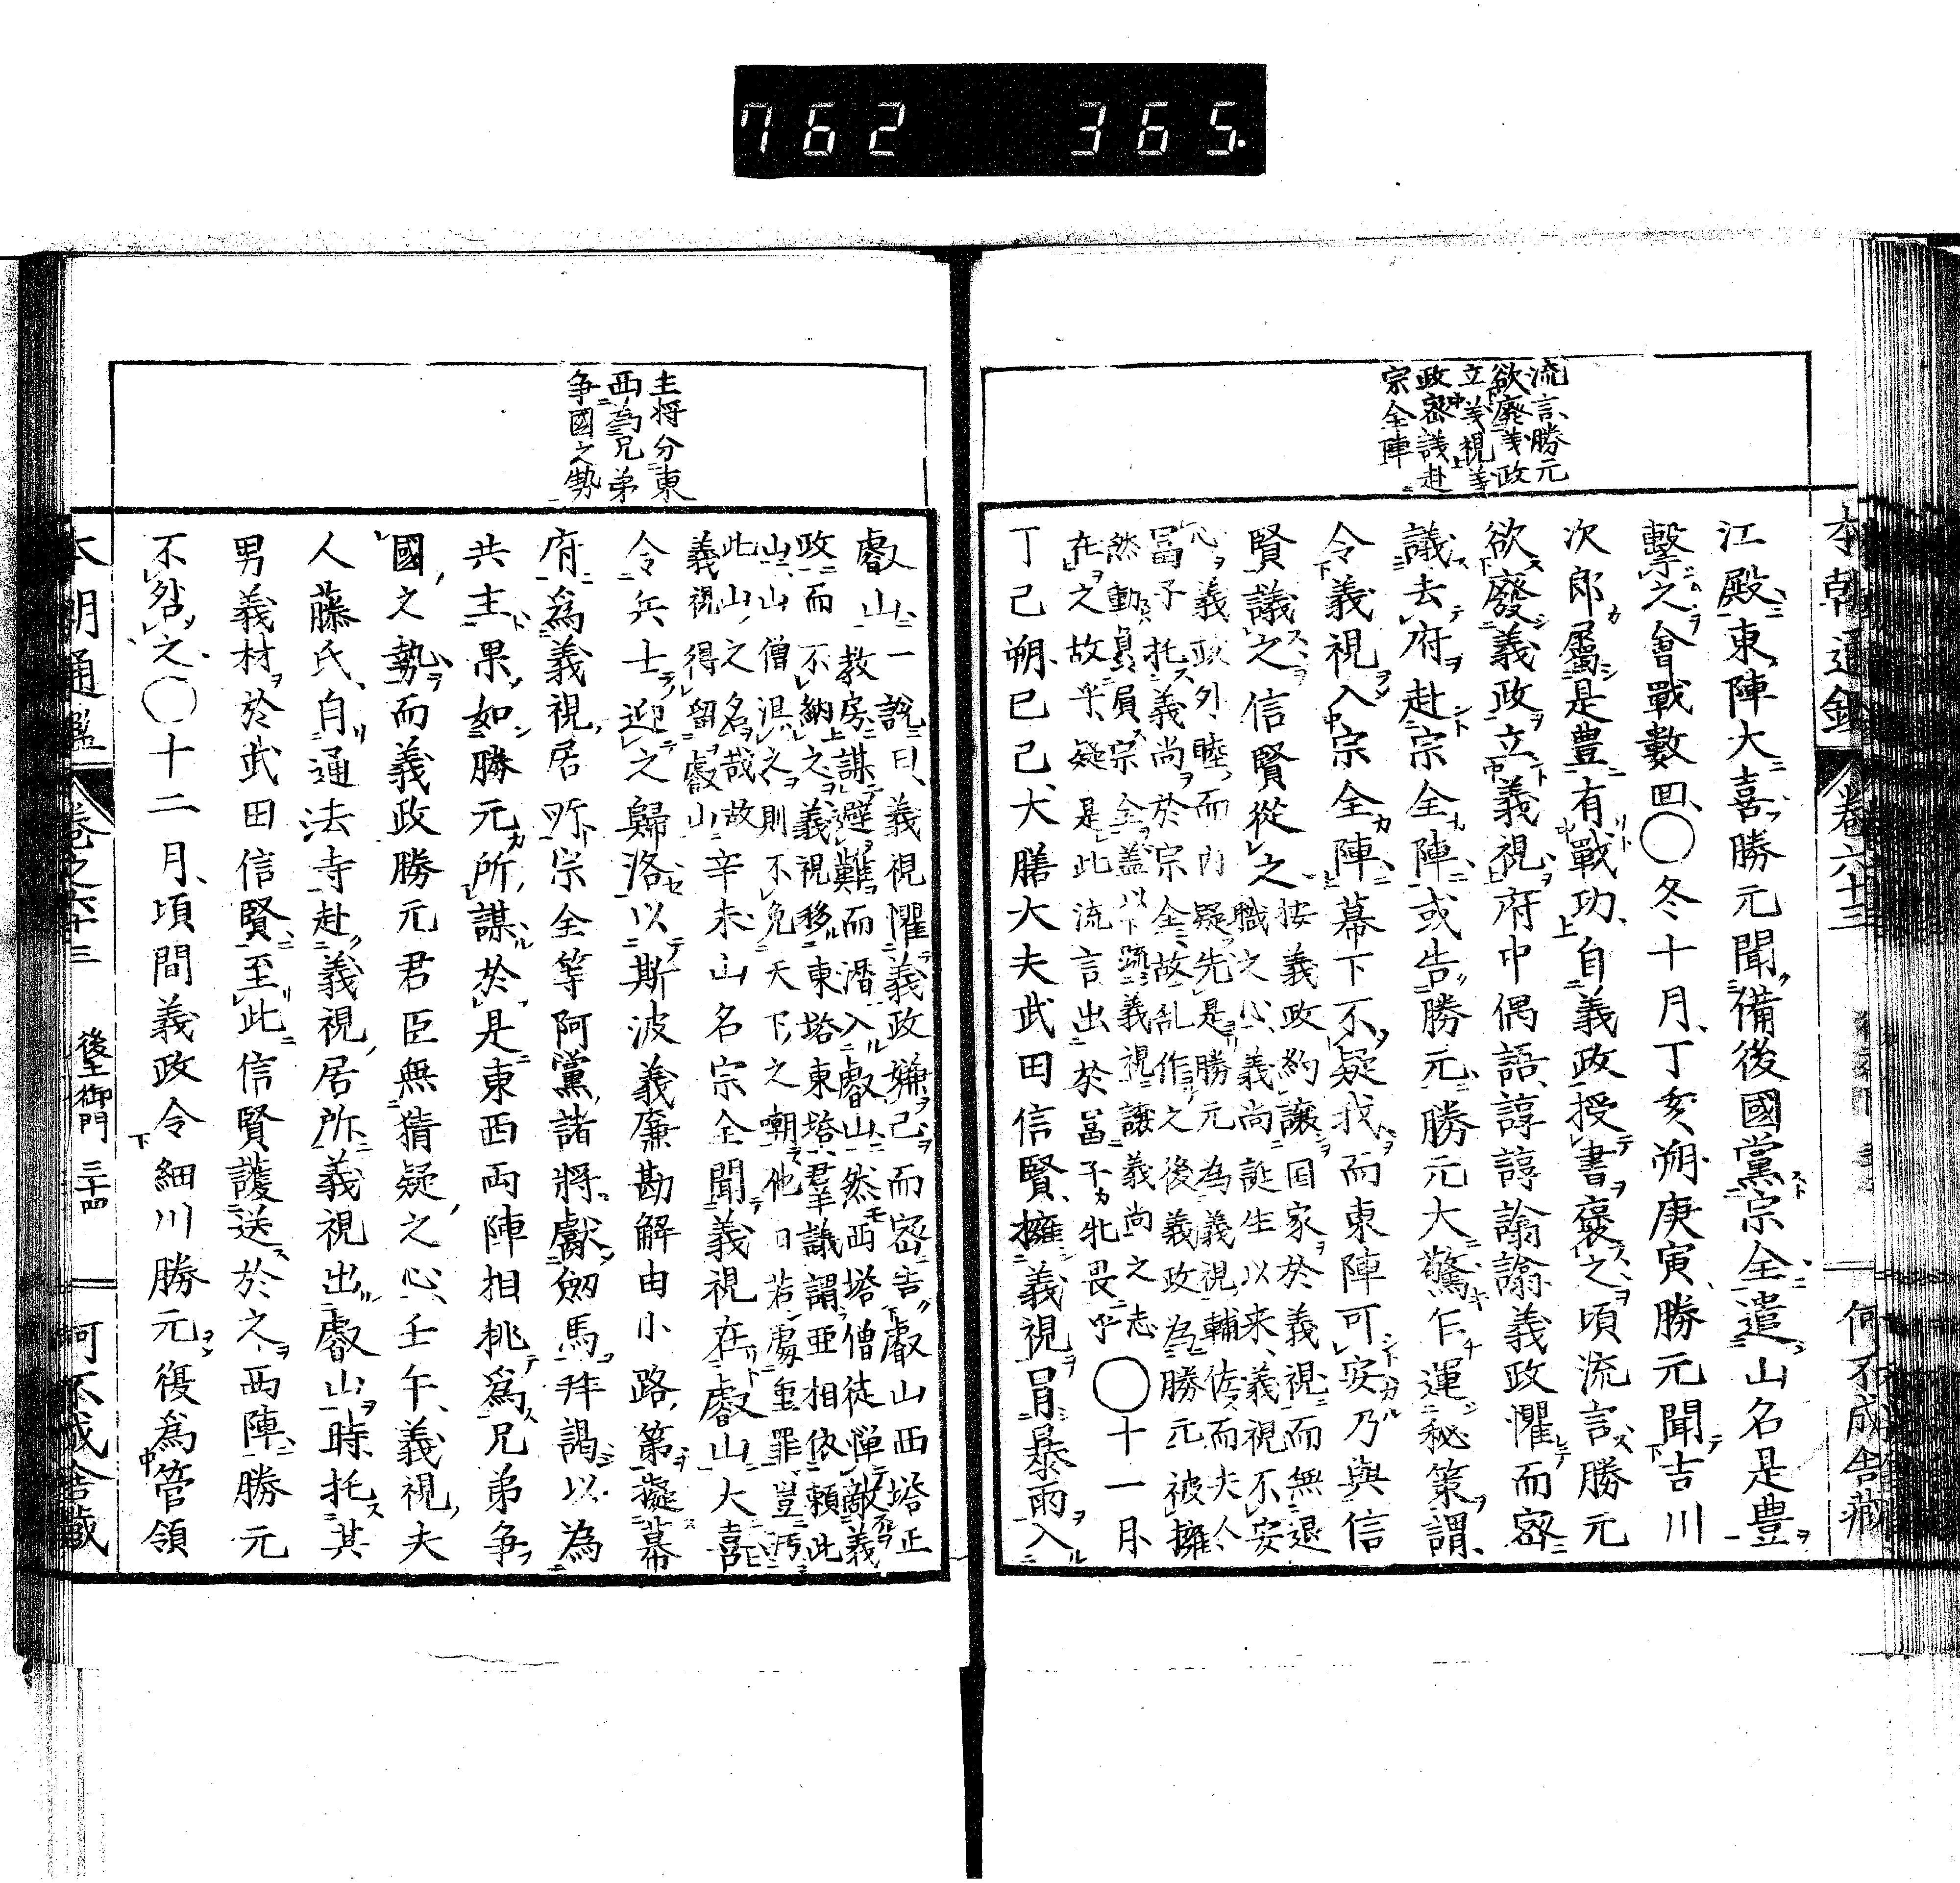 762 365.
本朝通鑑 卷六十三 何不成舎藏
流言勝元
欲廢義政
立義視義
政密議赴
宗全陣
江殿東陣大喜勝元聞備後國黨宗全遣山名是豊
擊之會戰數囬○冬十月丁亥朔庚寅勝元聞吉川
次郎屬是豊有戰功自義政授書褒之頃流言勝元
欲廢義政立義視府中偶語諄諄諭諭義政懼而密
議去府赴宗全陣或告勝元勝元大驚乍運秘策謂
令義視入宗全陣幕下不疑我而東陣可安乃與信
賢議之信賢從之
按義政約讓国家於義視而無退
職之心義尚誕生以来義視不安
心義政外睦而内疑先是勝元為義視輔佐而夫人
冨子托義尚於宗全故乱作之後義政為勝元被擁
然動負宗全蓋以下踈義視讓義尚之志
在之故乎疑是此流言出於冨子カ牝畏乎
○十一月
丁己朔已己大膳大夫武田信賢擁義視冒暴雨入
主將分東
西為兄弟
争國之勢
叡山
一說曰義視懼義政嫌己而密告叡山西塔正
教房謀避難而潛入叡山然西塔僧徒憚敵義
政而不納之義視移東塔東塔羣議謂亜相依頼此
山山僧沮之則不免天下之嘲他日若處重罪豈汚
此山之名哉故
義視得留叡山
辛未山名宗全聞義視在叡山大喜
令兵士迎之歸洛以斯波義廉勘解由小路第擬幕
府為義視居所宗全等阿黨諸將獻劔馬拜謁以為
共主果如勝元所謀於是東西両陣相挑為兄弟争
國之勢而義政勝元君臣無猜疑之心壬午義視夫
人藤氏自通法寺赴義視居所義視出叡山時托其
男義材於武田信賢至此信賢護送於之西陣勝元
不咎之○十二月頃間義政令細川勝元復為管領
本朝通鑑 卷之六十三 後土御門 三十四 何不成舎藏